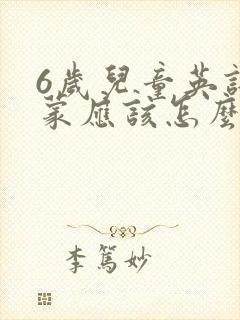 6歲兒童英
蒙應該怎麼
李篤妙